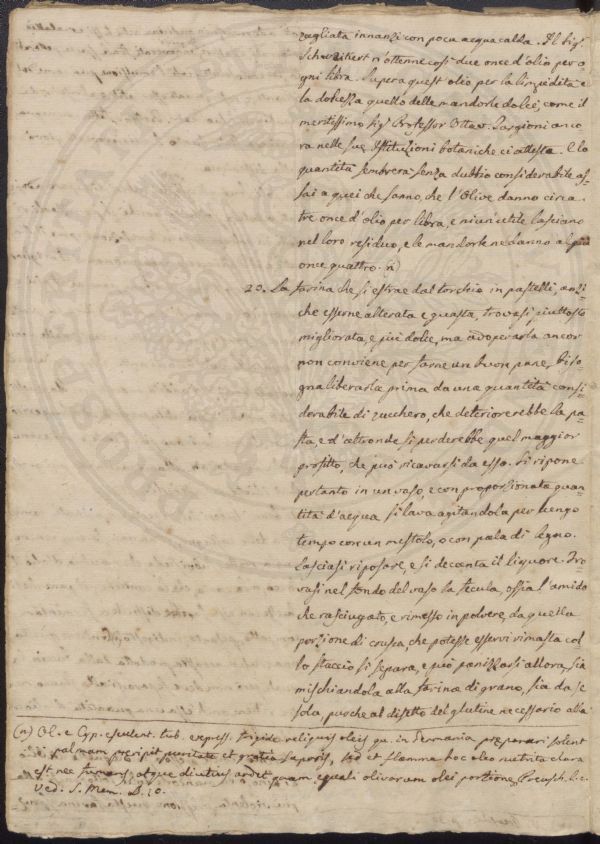 zugliata innanzi con poca acqua calda. Il Sig.
n'ottenne così due once d'olio per o=
gni libra. Supera quest'olio per la limpidità e
la dolcezza quello delle mandorle dolci, come il
meritissimo Sig. Professor Ottav. Targioni anco
ra nelle sue Istituzioni botaniche ci attesta. E la
quantità sembrerà senza dubbio considerabile as=
sai a quei che sanno, che l'Olive danno circa
tre once d'olio per libra, e niun'utile lasciano
nel loro residuo, e le mandorle ne danno al più
once quattro. (n)
20. La farina che si estrae dal torchio in pastelli, anzi
che esserne alterata e guasta, trovasi piuttosto
migliorata, e più dolce, ma adoperarla ancor
non conviene per farne un buon pane, biso=
gna liberarla prima da una quantità consi=
derabile di zucchero, che deteriorerebbe la pa=
sta, e d'altronde si perderebbe quel maggior
profitto, che può ricavarsi da esso. Si ripone
pertanto in un vaso, e con proporzionata quan=
tità d'acqua si lava agitandola per lungo
tempo con un mestolo, o con pala di legno.
Lasciasi riposare, e si decanta il liquore. Tro=
vasi nel fondo del vaso la fecula, ossia l'amido
che rasciugato, e rimesso in polvere, da quella
porzione di crusca, che potesse esservi rimasta col=
lo staccio si separa, e può panizzarsi allora, sia
mischiandola alla farina di grano, sia da se
sola purchè al difetto del glutine necessario alla
(n) Ol. e Cyp. esculent. tub. express. frigide reliquis oleis qu. in Germania preparari solent
palmam preripit puritate et gratia saporis, sed et flamma hoc oleo nutrita clara
est nec fumans, atque diutius ardet quam equali olivarum olei portione. l. c.
Ved. S. Mem. 20.